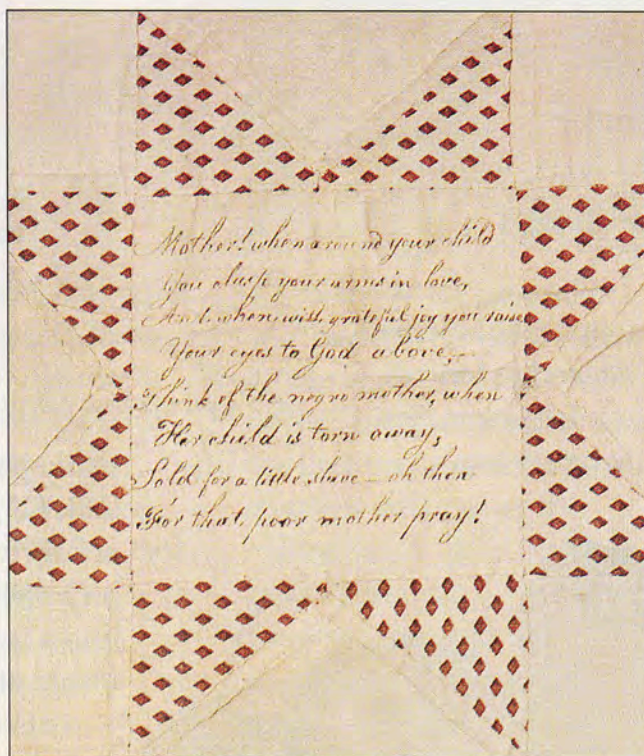 Mother! when around your child
You clasp your arms in love,
And when with grateful joy you raise
Your eyes to God above,
Think of the negro mother, when
Her child is torn away,
Sold for a little slave — oh then
For that poor mother pray!